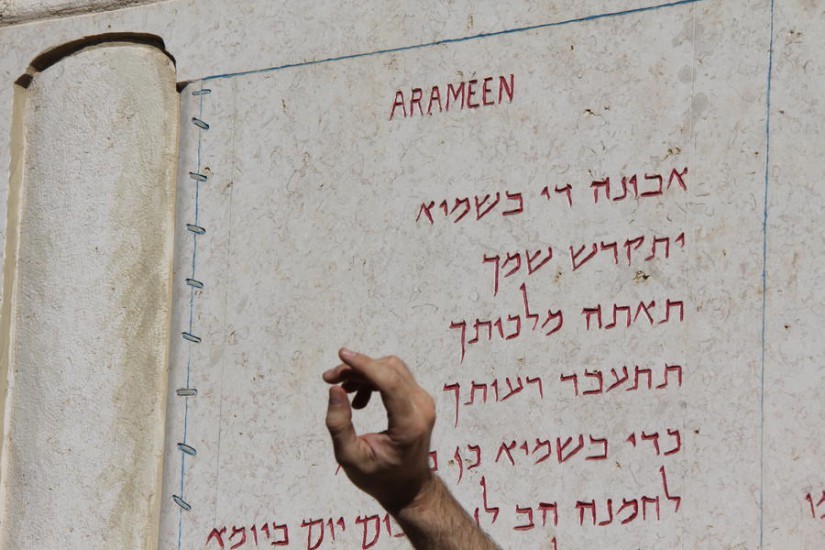 ARAMÉEN
אבונה די בשמיא
יתקדש שמך
תאתה מלכותך
תתעבד רעותך
כדי בשמיא כן
לחמנה הב יום ביומא